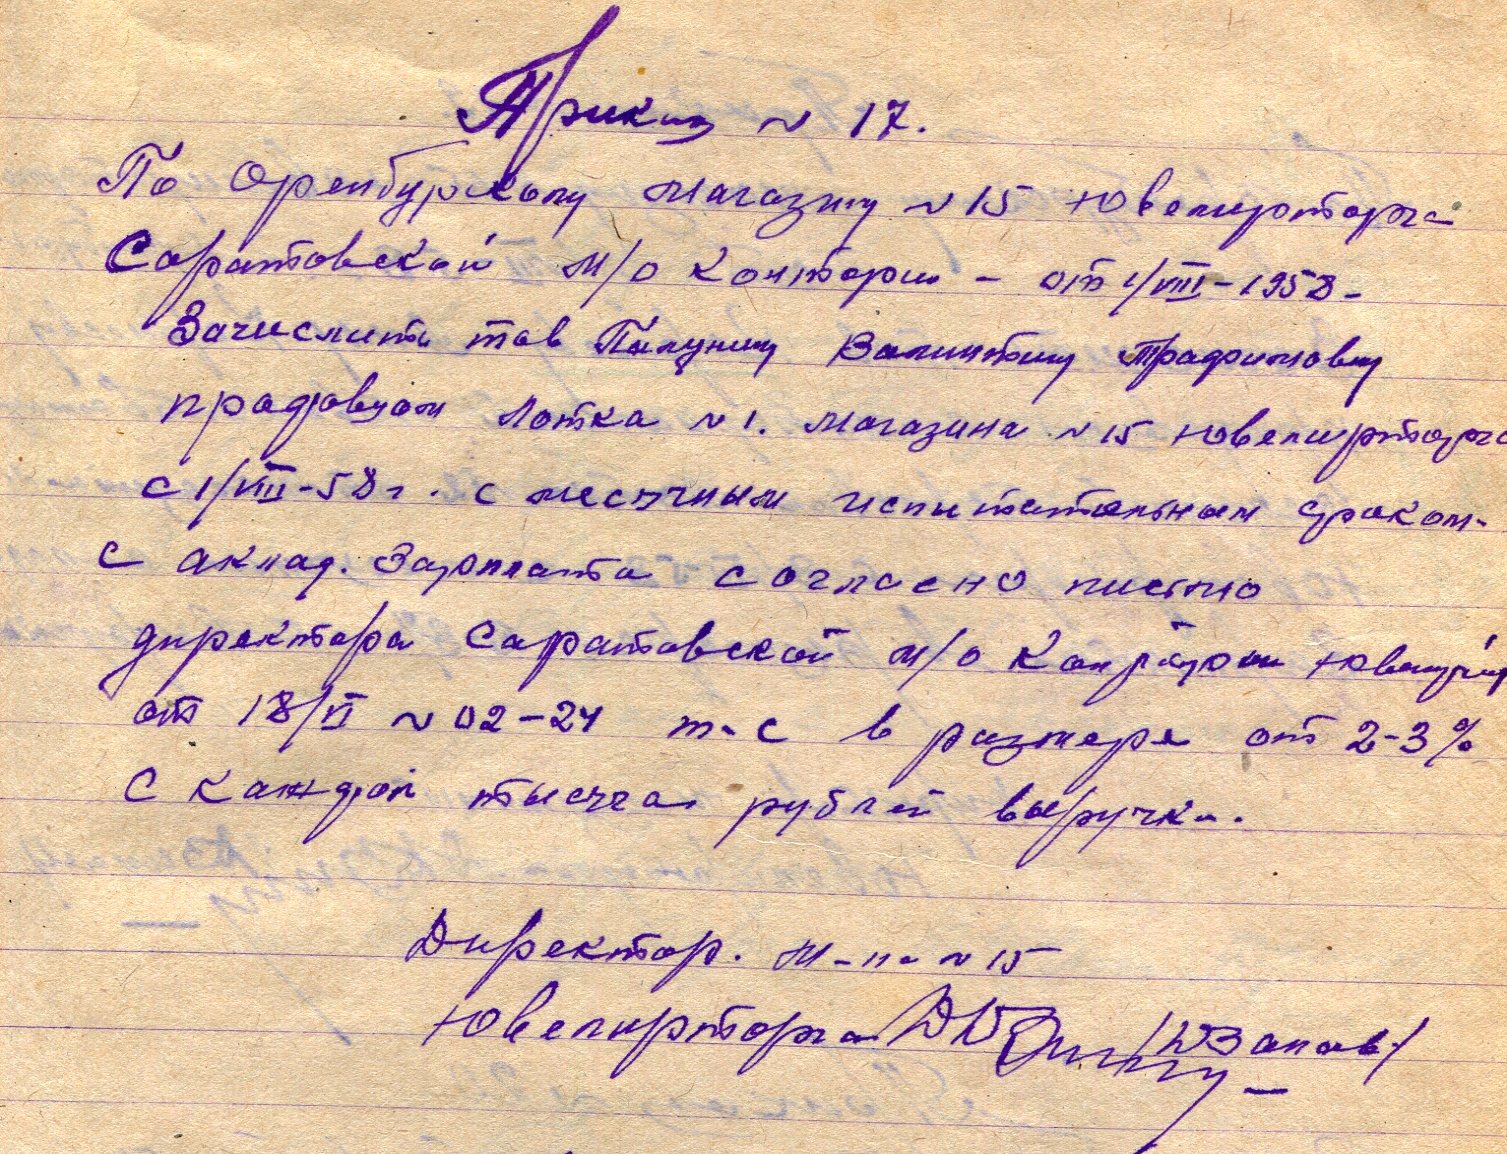 Приказ № 17.
По Оренбургскому магазину № 15 Ювелирторга
Саратовской м/о конторы - от 1/VIII-1958-
Зачислить тов Валинтину Трафимовну
продовцом Лотка № 1. магазина № 15 Ювелирторга
с 1/VIII-58г. с месячным испытательным сроком-
с аклад. Зарплата согласно письмо
директора Саратовской м/о конторы
от 18/VI № 02-24 т-с в размере от 2-3%
с каждой тысяча рублей выручки.
Директор. м-на № 15
Ювелирторга